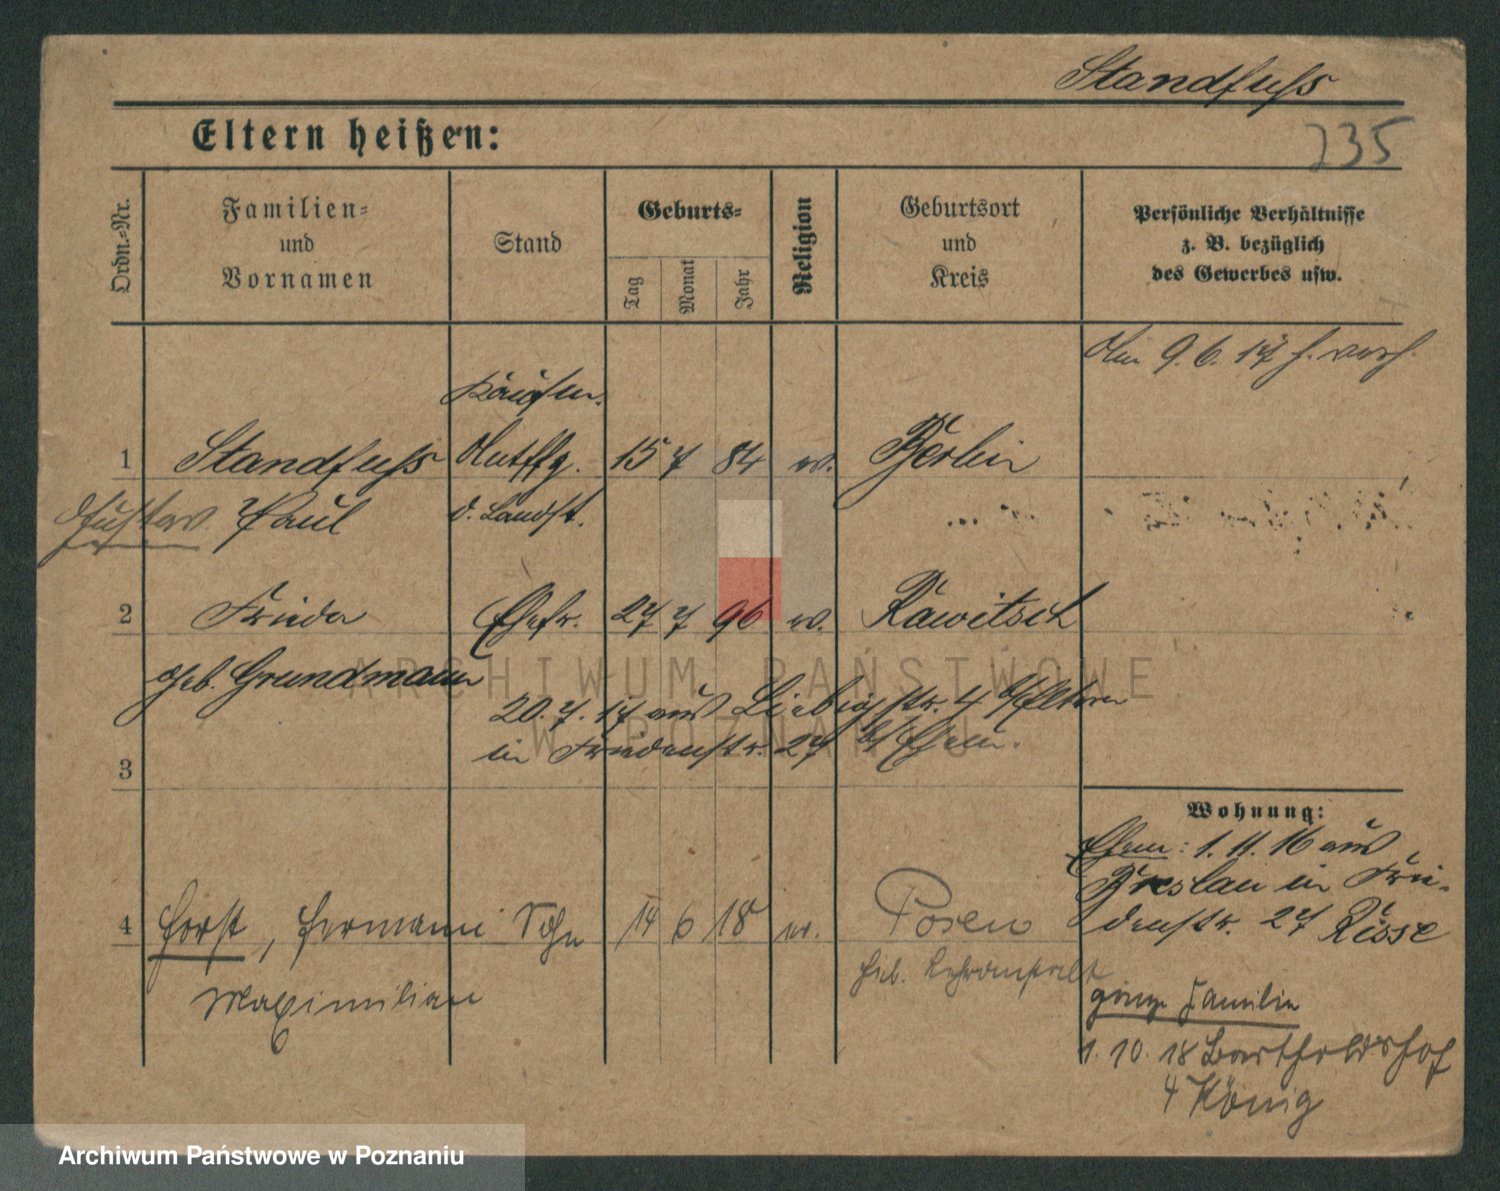 Standfuß
235
Eltern heißen:
Ordn.-Nr.
Familien-
und
Vornamen
Stand
Geburts-
Tag
Monat
Jahr
Religion
Geburtsort
und
Kreis
Persönliche Verhältnisse
z. B. bezüglich
des Gewerbes usw.
9. 6. 17 h.
Kaufm.
1 Standfuß 15 7 84 ev. Berlin
Gustav Paul d. Landst.
2 Frieda Ehefr. 27 7 96 ev. Rawitsch
geb. Grundmann
20. 7. 17 aus Liebigstr. 4 b/Eltern
in Friedenstr. 27 b/Ehem.
3
Wohnung:
Ehem: 1. 11. 16 aus
Breslau in Frie-
denstr. 27 Risse
4 Horst, Hermann Sohn 14 6 18 ev. Posen
Maximilian
Heb. Lehranstalt
ganze Familie
1. 10. 18 Bartholdshof
4 König
ARCHIWUM PAŃSTWOWE
W POZNANIU
Archiwum Państwowe w Poznaniu